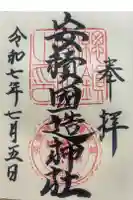 奉拝
安積国造神社
令和七年七月五日